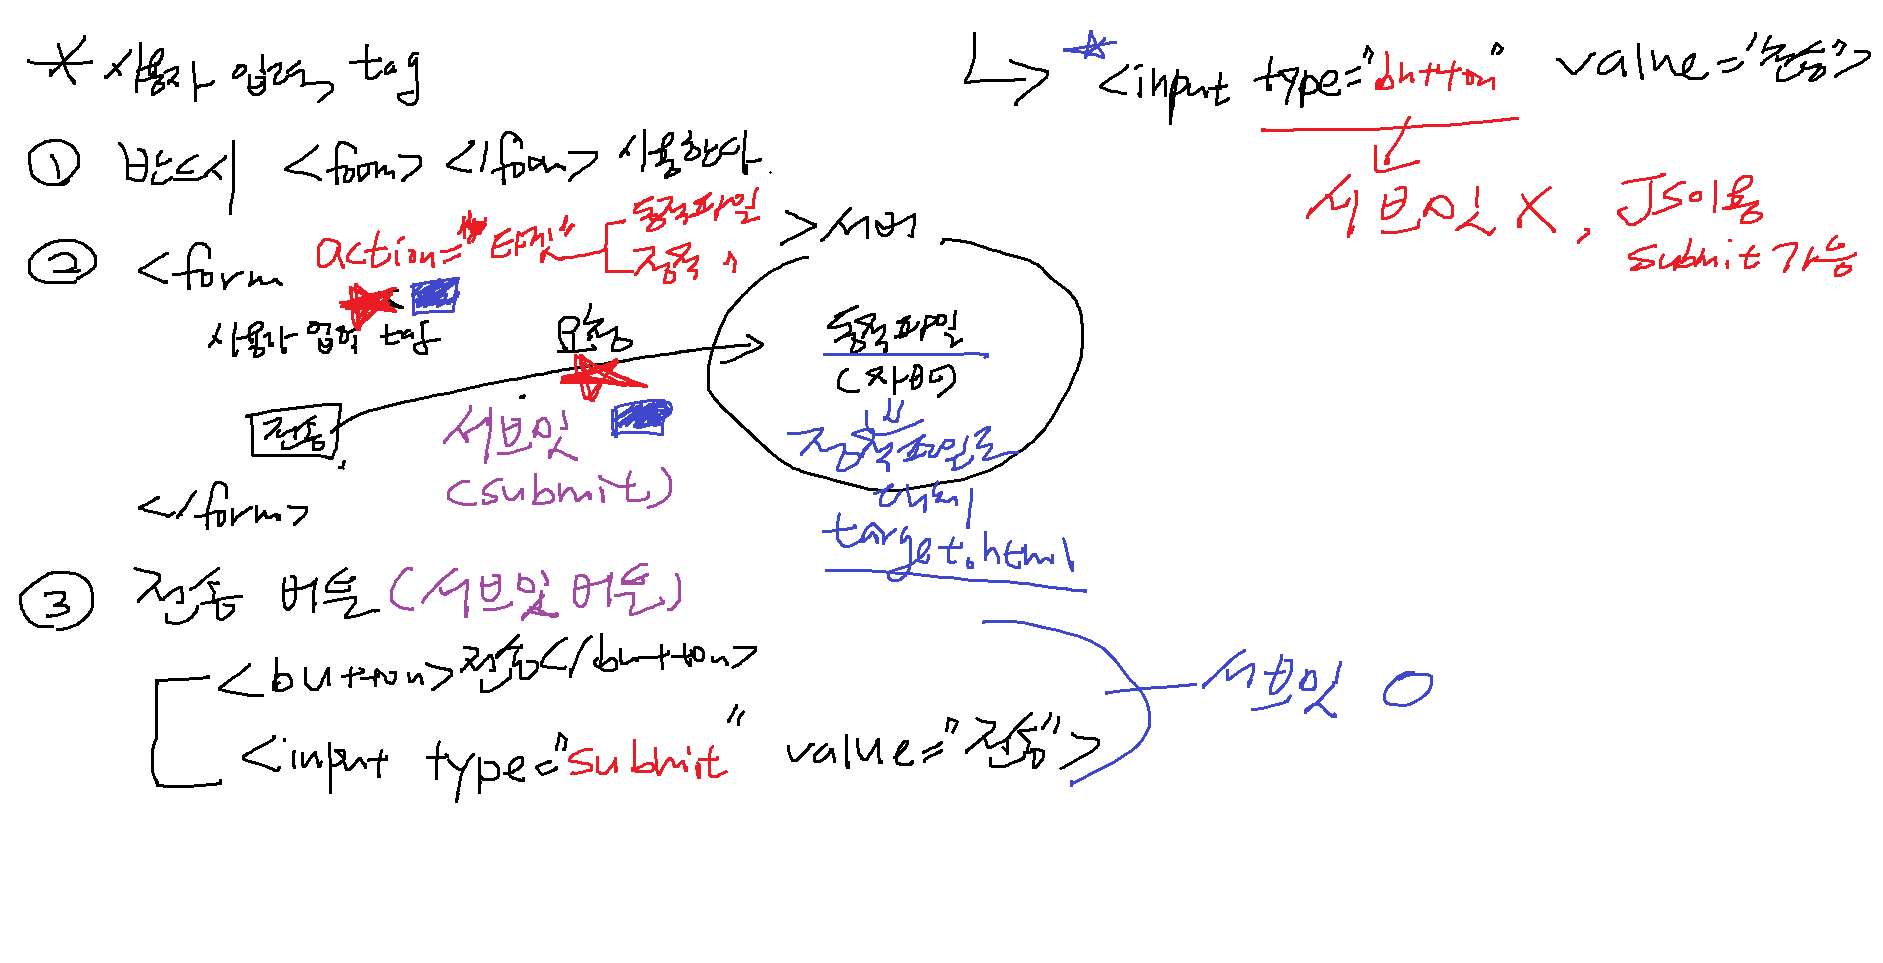 * 사용자 입력 tag
① 반드시 <form> </form> 사용한다.
② <form action="타겟"> 서버
동적파일
정적 "
사용자 입력 tag
요청
전송
서브밋
(submit)
</form>
동적파일
(자바)
정적파일로
대체
target.html
③ 전송 버튼 (서브밋 버튼)
<button>전송</button>
<input type="submit" value="전송">
서브밋 O
↳ ☆ <input type="button" value="전송">
서브밋 X, JS이용
submit 가능